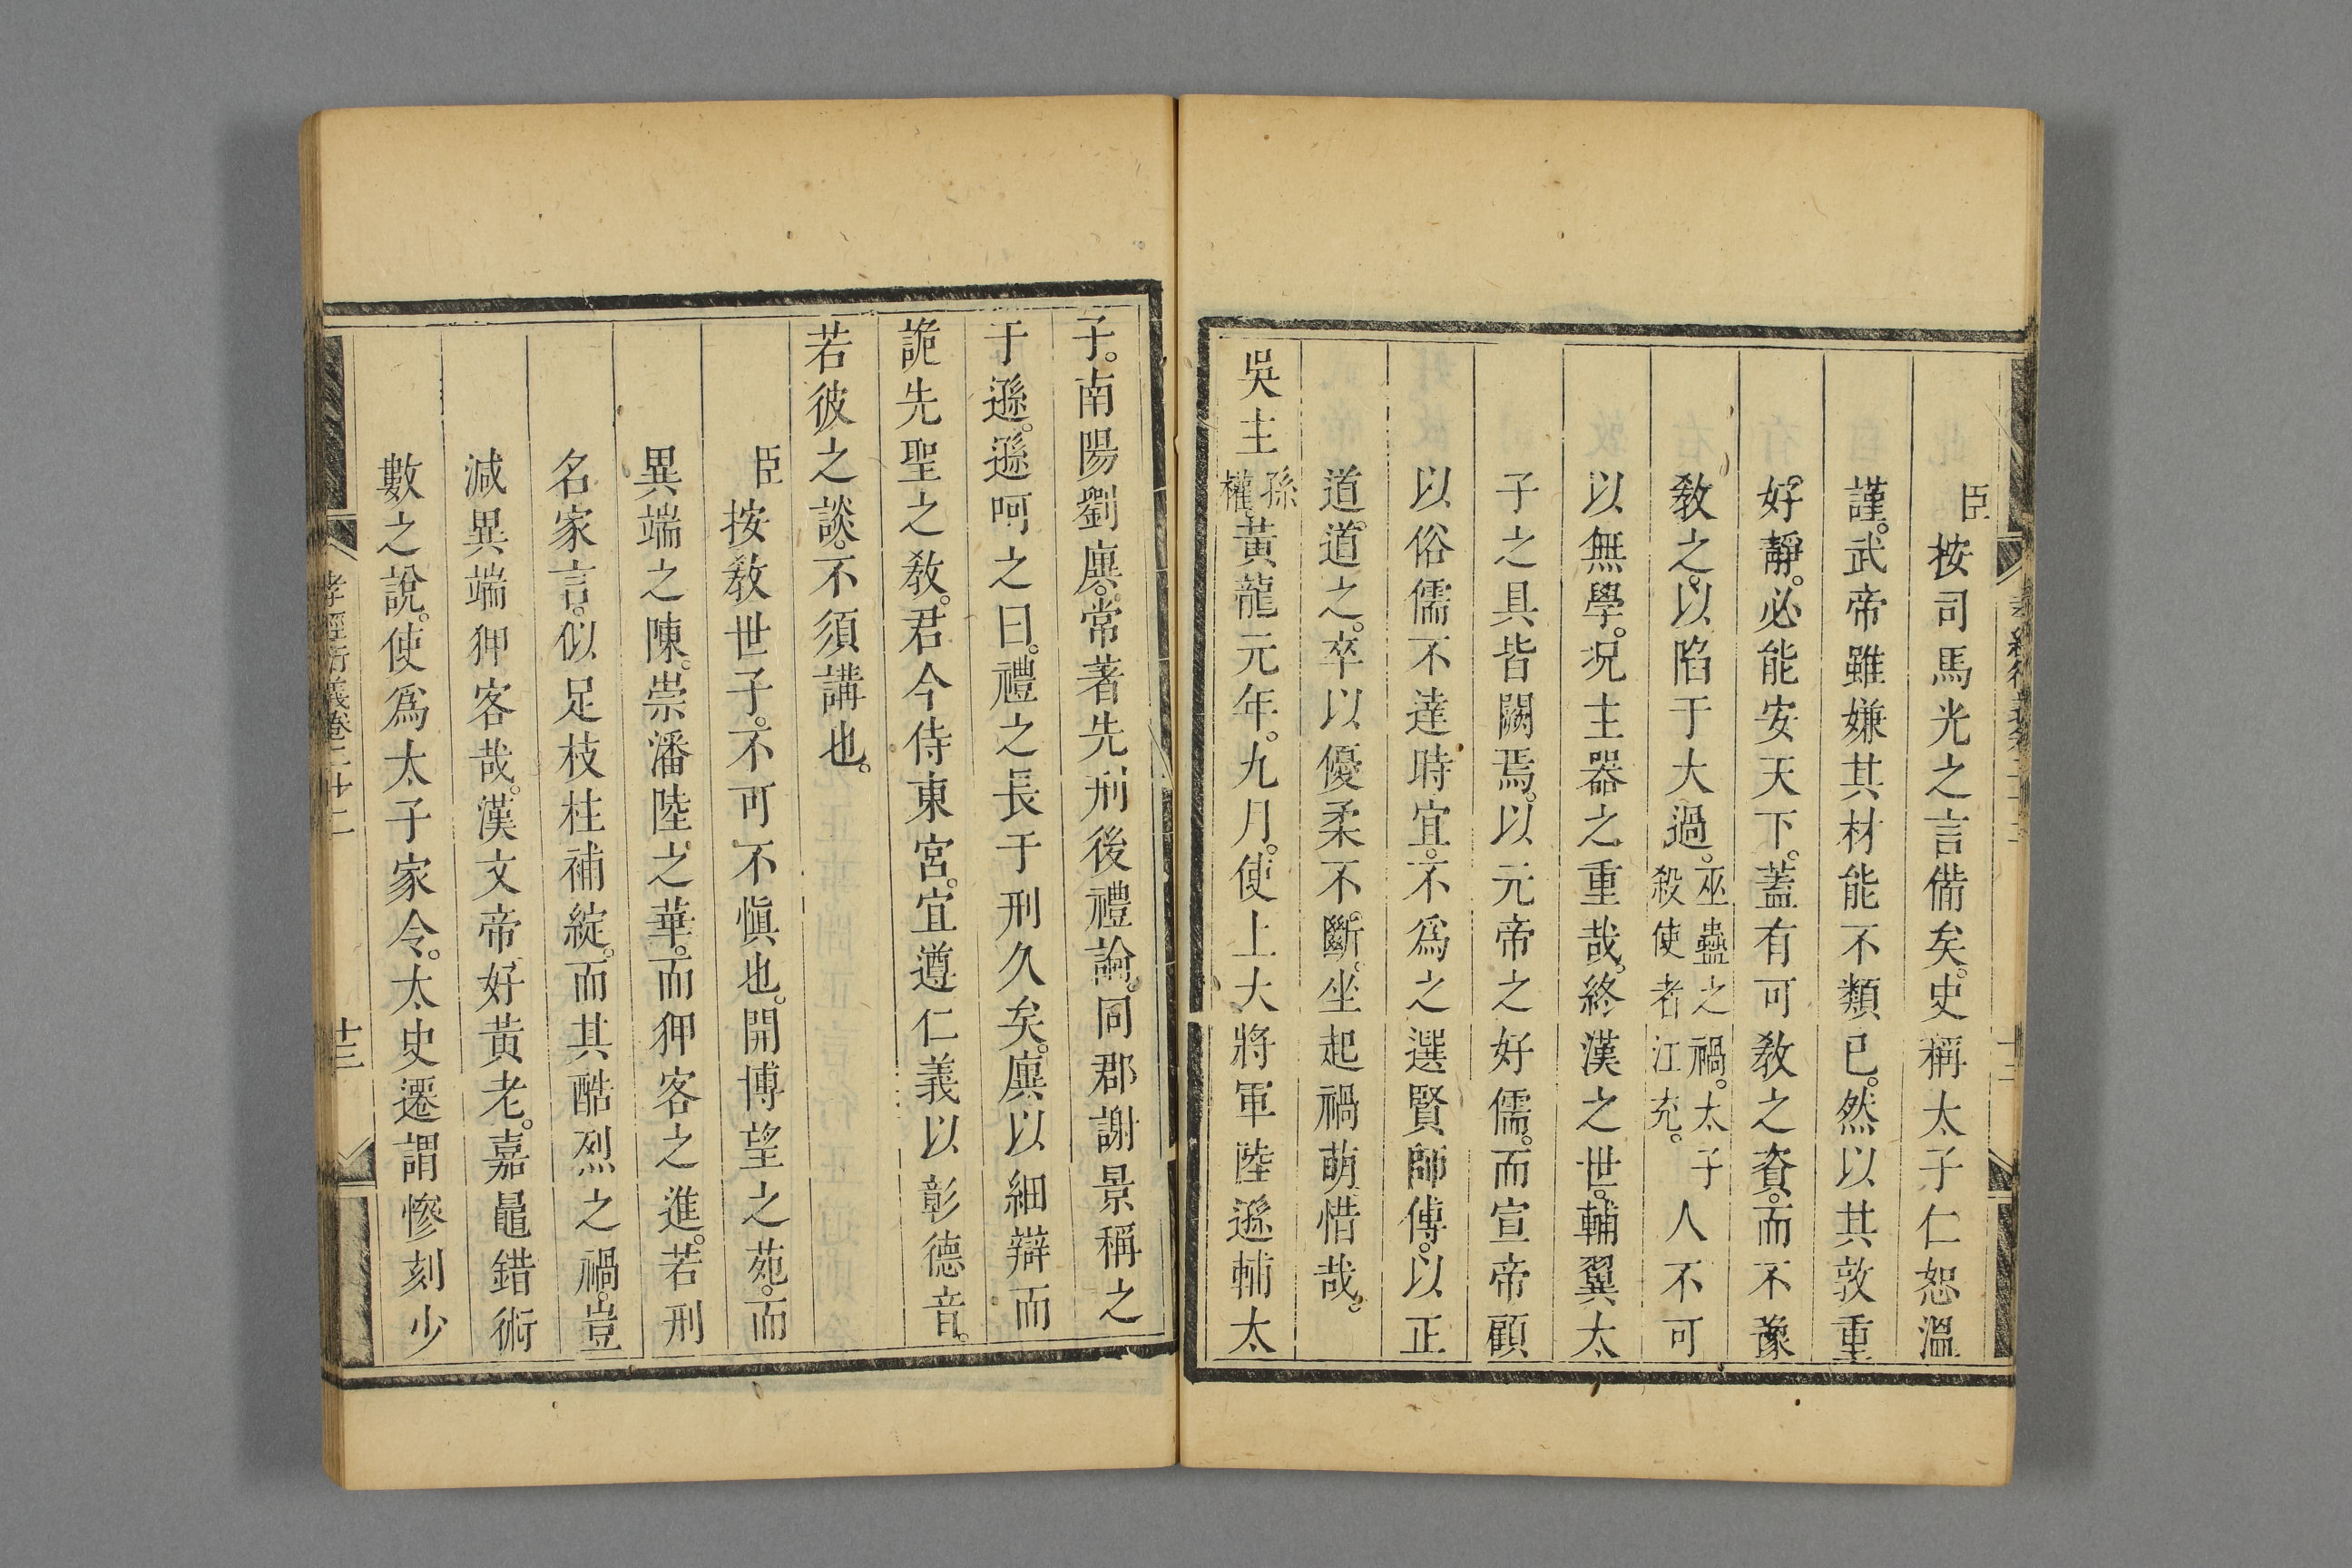 臣按司馬光之言備矣。史稱太子仁恕溫
謹。武帝雖嫌其材能不類已。然以其敦重
好靜。必能安天下。蓋有可敎之資。而不豫
敎之。以陷于大過。巫蠱之禍。太子殺使者江充。人不可
以無學。況主器之重哉。終漢之世。輔翼太
子之具皆闕焉。以元帝之好儒。而宣帝顧
以俗儒不達時宜。不爲之選賢師傅。以正
道道之。卒以優柔不斷。坐起禍萌。惜哉。
吳主孫權黃龍元年。九月。使上大將軍陸遜輔太
子。南陽劉廙。常著先刑後禮論。同郡謝景稱之
于遜。遜呵之曰。禮之長于刑久矣。廙以細辯而
詭先聖之敎。君今侍東宮。宜遵仁義以彰德音。
若彼之談。不須講也。
臣按敎世子。不可不愼也。開博望之苑。而
異端之陳。崇潘陸之華。而狎客之進。若刑
名家言。似足枝柱補綻。而其酷烈之禍。豈
減異端狎客哉。漢文帝好黃老。嘉鼂錯術
數之說。使爲太子家令。太史遷謂慘刻少
孝經衍義卷二十二
十三